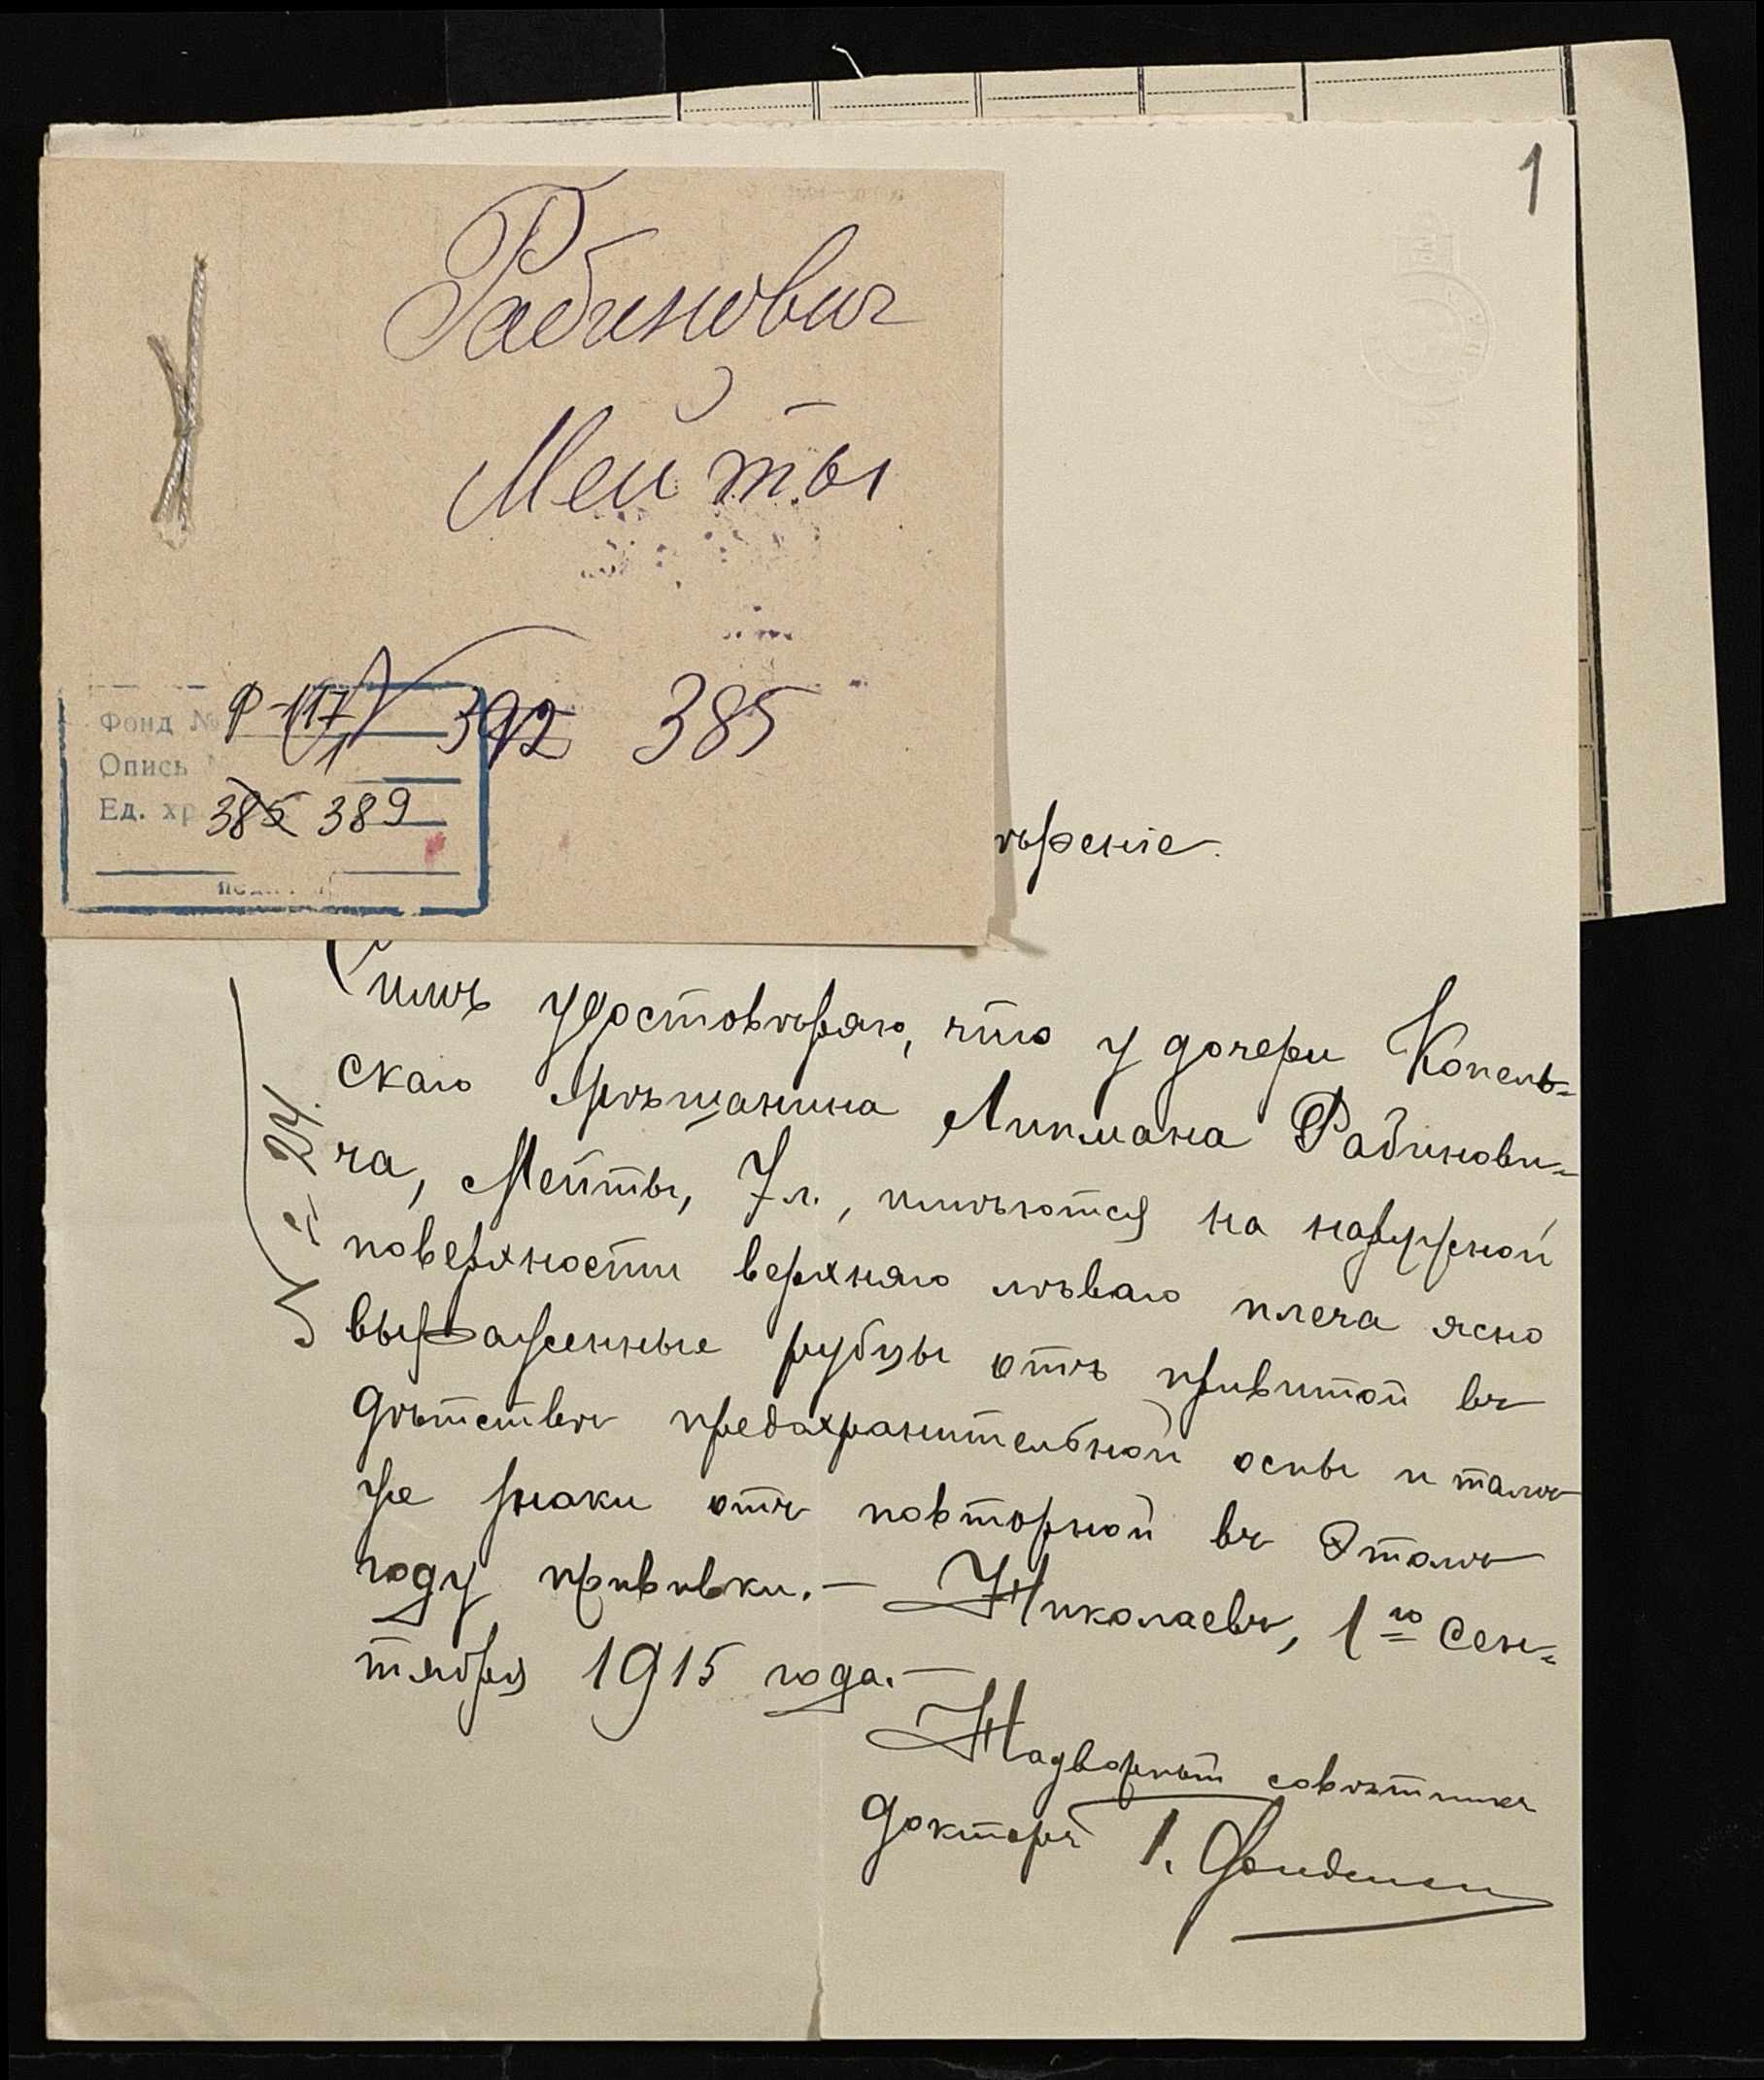 1
Рабинович
Мейты
392 385
Фонд № Ф-117
Опись 1
Ед. хр 385 389
ѣреніе.
Симъ удостовѣряю, что у дочери Копель=
скаго мѣщанина Липмана Рабинови=
ча, Мейты, 7 л., имѣются на наружной
поверхности верхняго лѣваго плеча ясно
выраженные рубцы отъ привитой въ
дѣтствѣ предохранительной оспы и такіе
же знаки отъ повторной въ этомъ
году прививки.— Николаевъ, 1го Сен=
тября 1915 года.—
Надворный совѣтникъ
Докторъ І.
№ 24.